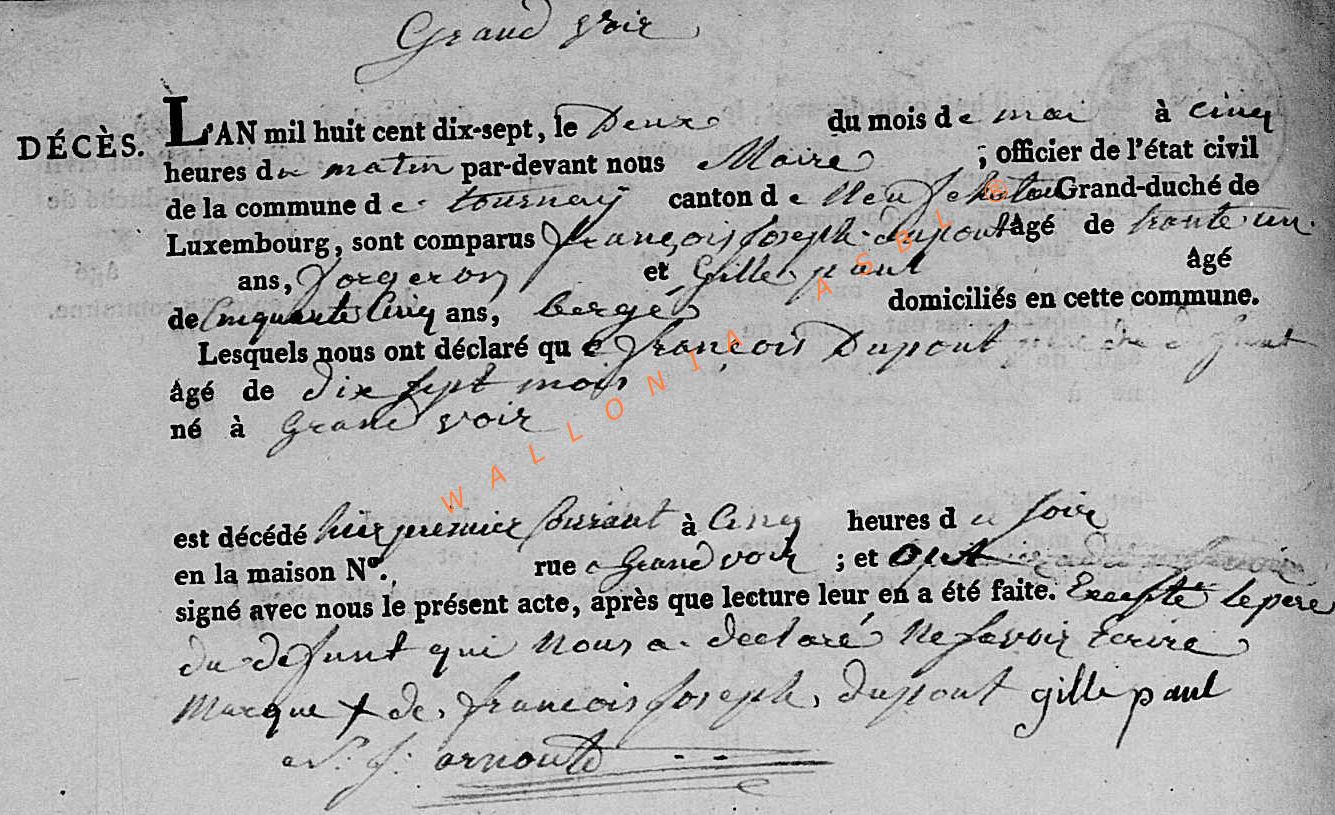 Grand voir
DÉCÈS. L'AN mil huit cent dix-sept, le Deux du mois de mai à cinq
heures du matin par-devant nous Maire ; officier de l'état civil
de la commune de tournay canton de Neufchatau Grand-duché de
Luxembourg, sont comparus françois Joseph dupont âgé de trante un
ans, forgeron et Gille paul âgé
de Cinquante Cinq ans, bergés domiciliés en cette commune.
Lesquels nous ont déclaré que françois Dupont
âgé de dix sept mois
né à Grand voir
est décédé hier premier Courant à Cinq heures du soir
en la maison N°., rue a Grand voir ; et ont
signé avec nous le présent acte, après que lecture leur en a été faite. Excepté le pere
du defunt qui nous a declaré ne savoir Ecrire
Marque + de françois Joseph dupont gille paul
arnould
WALLONIA ASBL ®